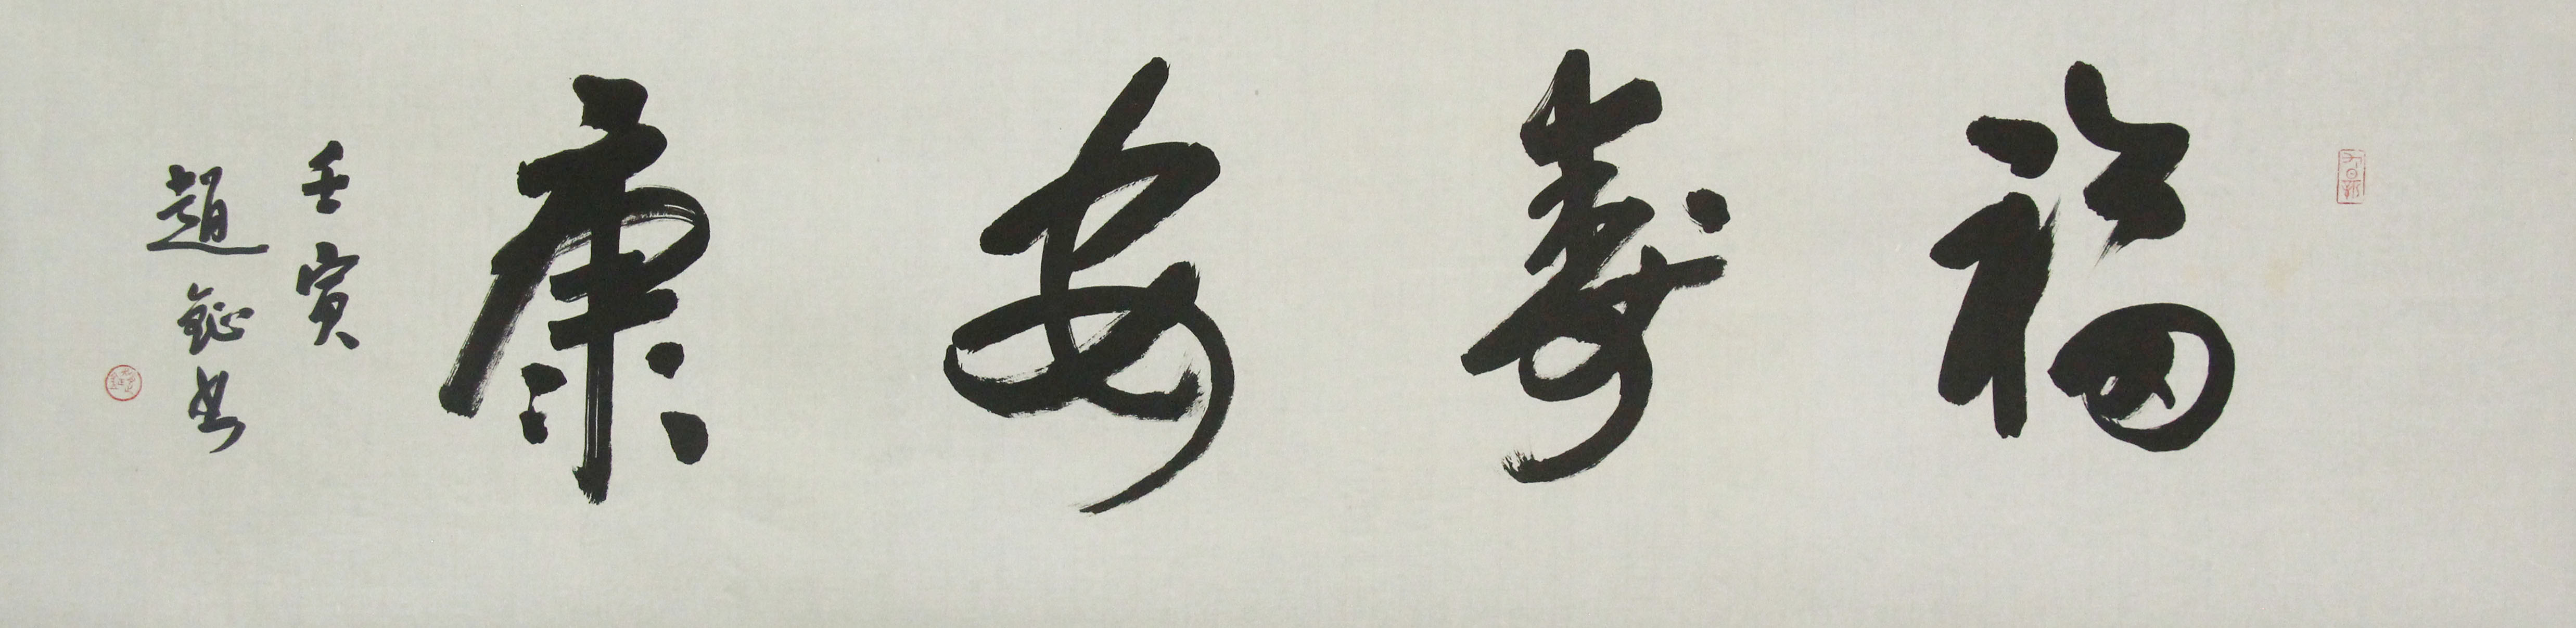 福壽安康
壬寅
趙鉦書